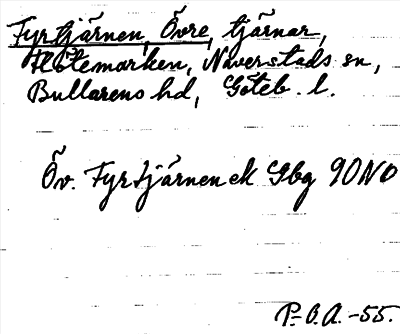 Fyrtjärnen, Övre, tjärnar,
Flötemarken, Naverstads sn,
Bullarens hd, Göteb. l.
Öv. Fyrtjärnen ek Gbg 90NO
P-O.A.-55.